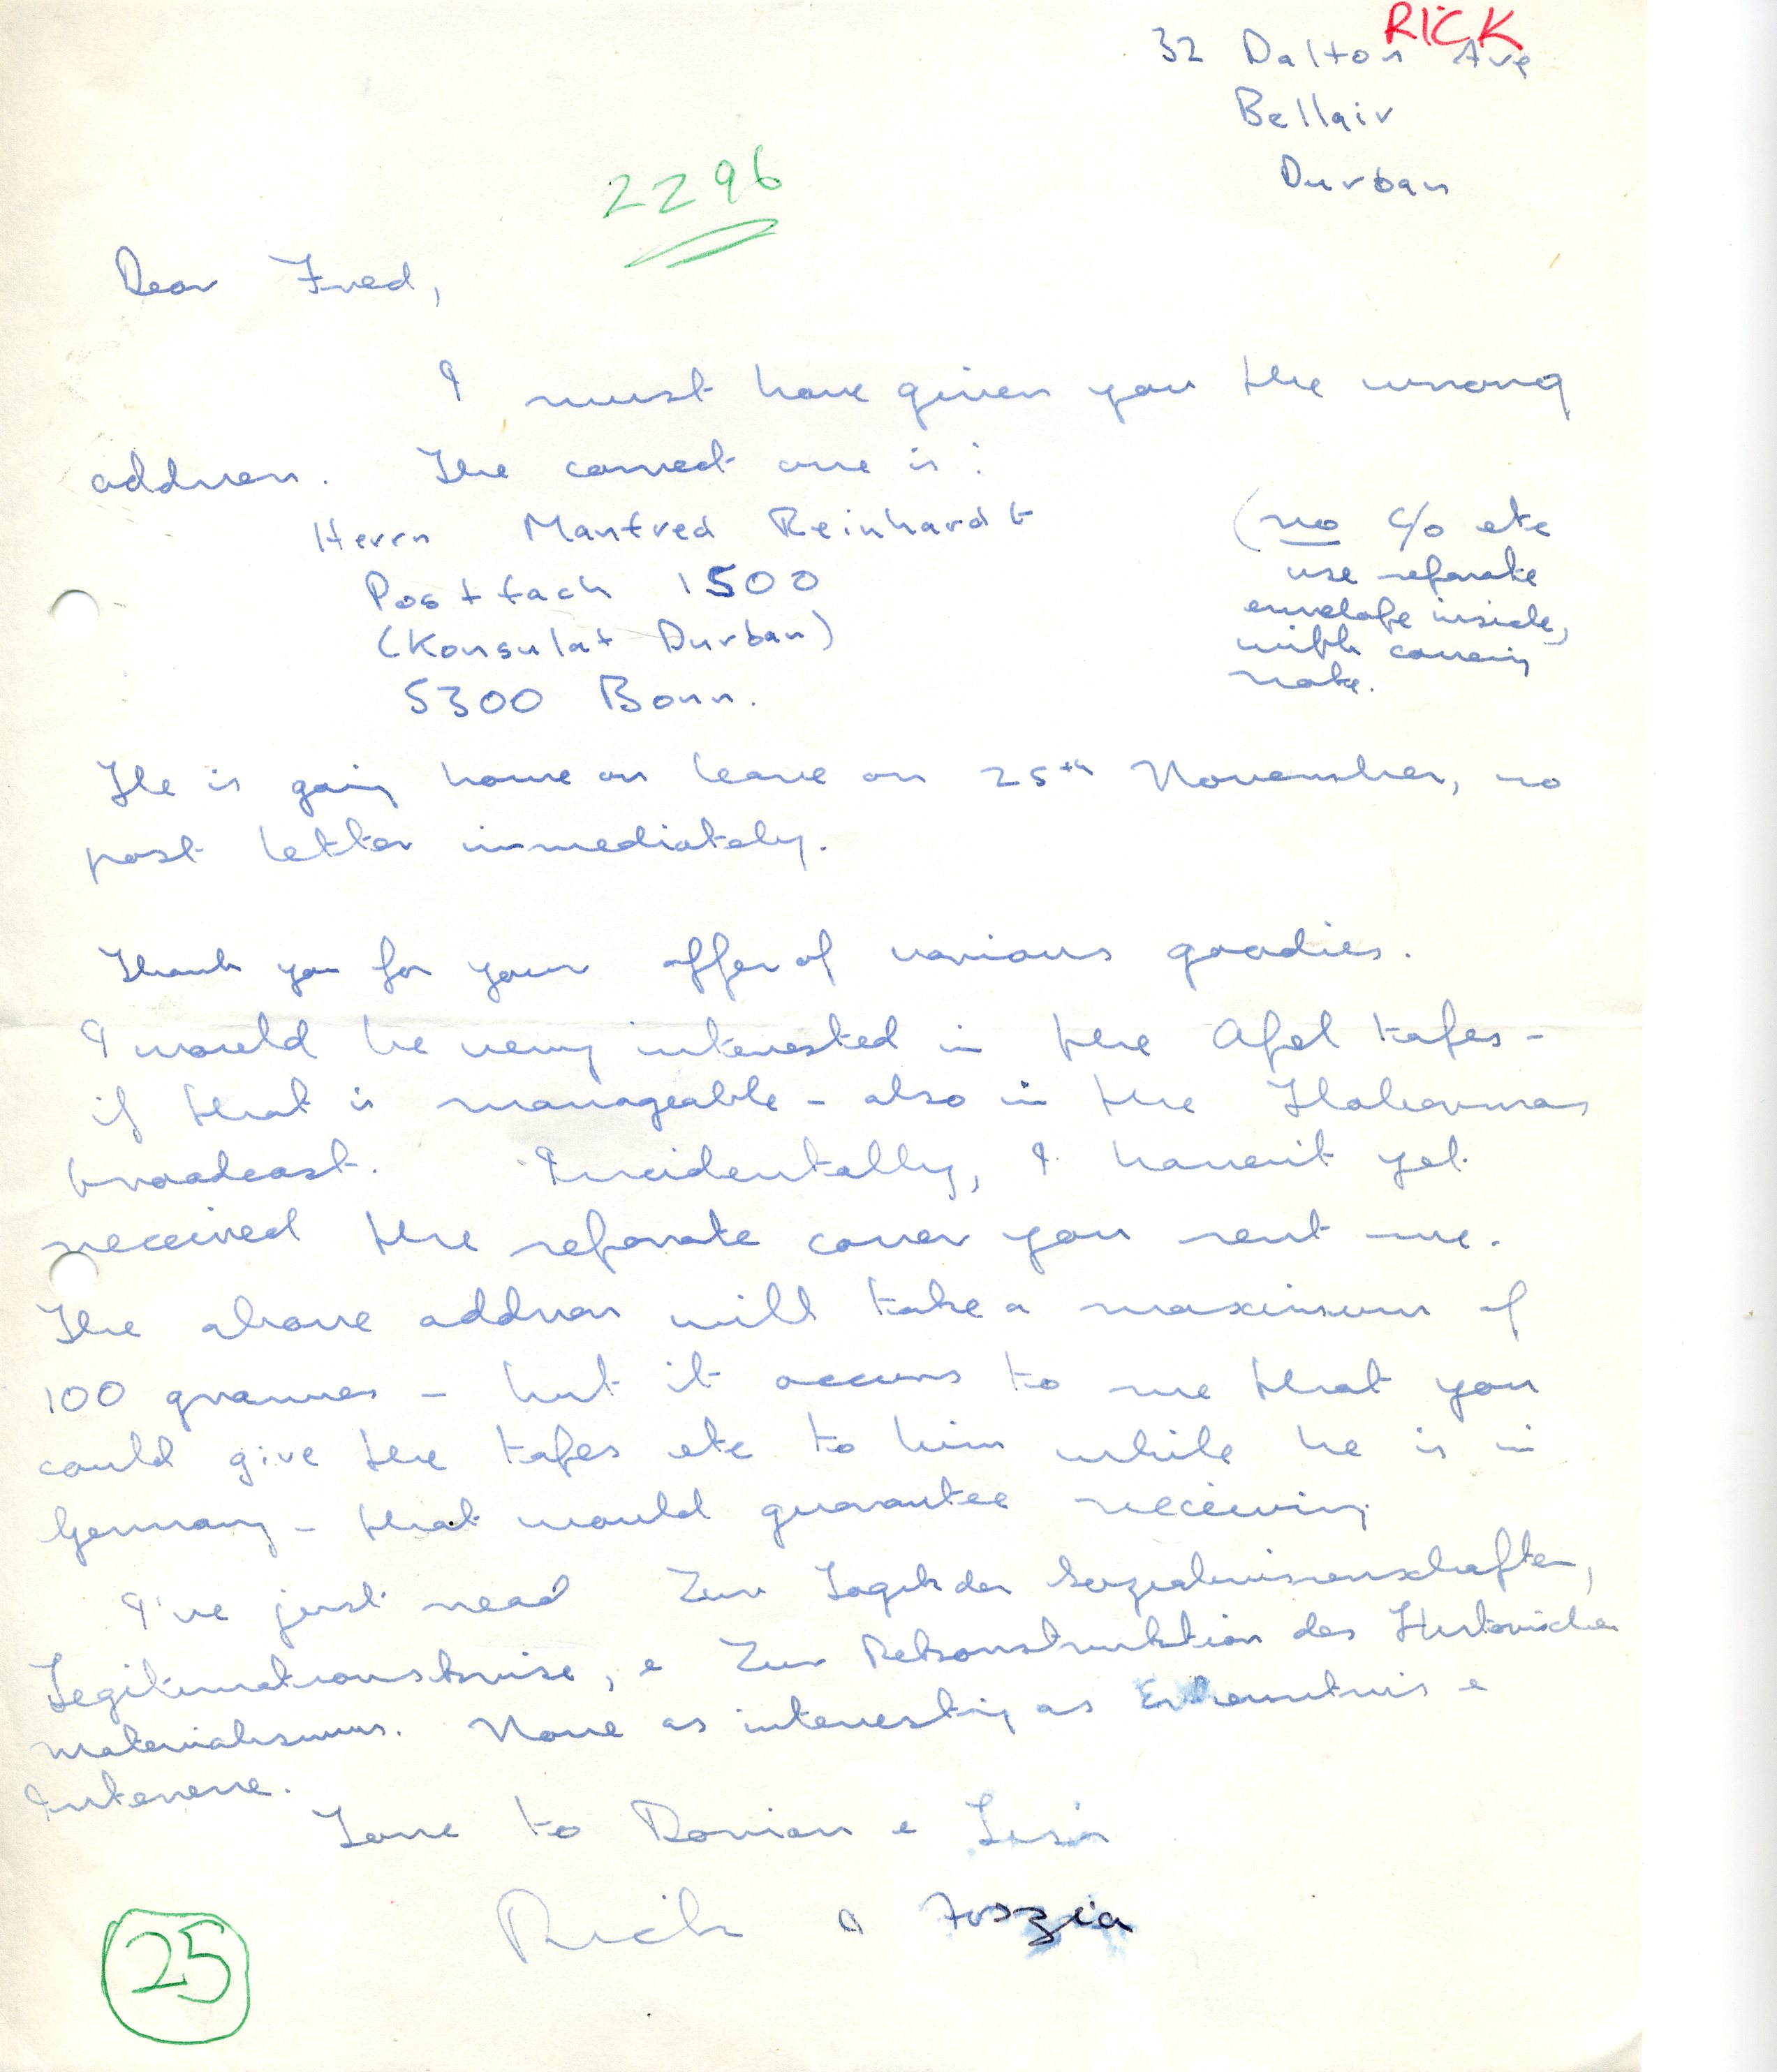 RICK
32 Dalton Ave
Bellair
Durban
2296
Dear Fred,
I must have given you the wrong
address. The correct one is:
Herrn Manfred Reinhardt
Postfach 1500
(Konsulat Durban)
5300 Bonn.
(no c/o etc
use separate
envelope inside,
with covering
note.
He is going home on leave on 25th November, so
post letter immediately.
Thank you for your offer of various goodies.
I would be very interested in the Apel tapes -
if that is manageable - also in the Habermas
broadcast. Incidentally, I haven't yet
received the separate cover you sent me.
The above address will take a maximum of
100 grammes - but it occurs to me that you
could give the tapes etc to him while he is in
Germany - that would guarantee receiving
I've just read Zur Logik der Sozialwissenschaften,
Legitimationskrise, & Zur Rekonstruktion des Historischen
Materialismus. None as interesting as Erkenntnis &
Interesse.
Love to Dorian & Lisa
Rick & Foszia
25